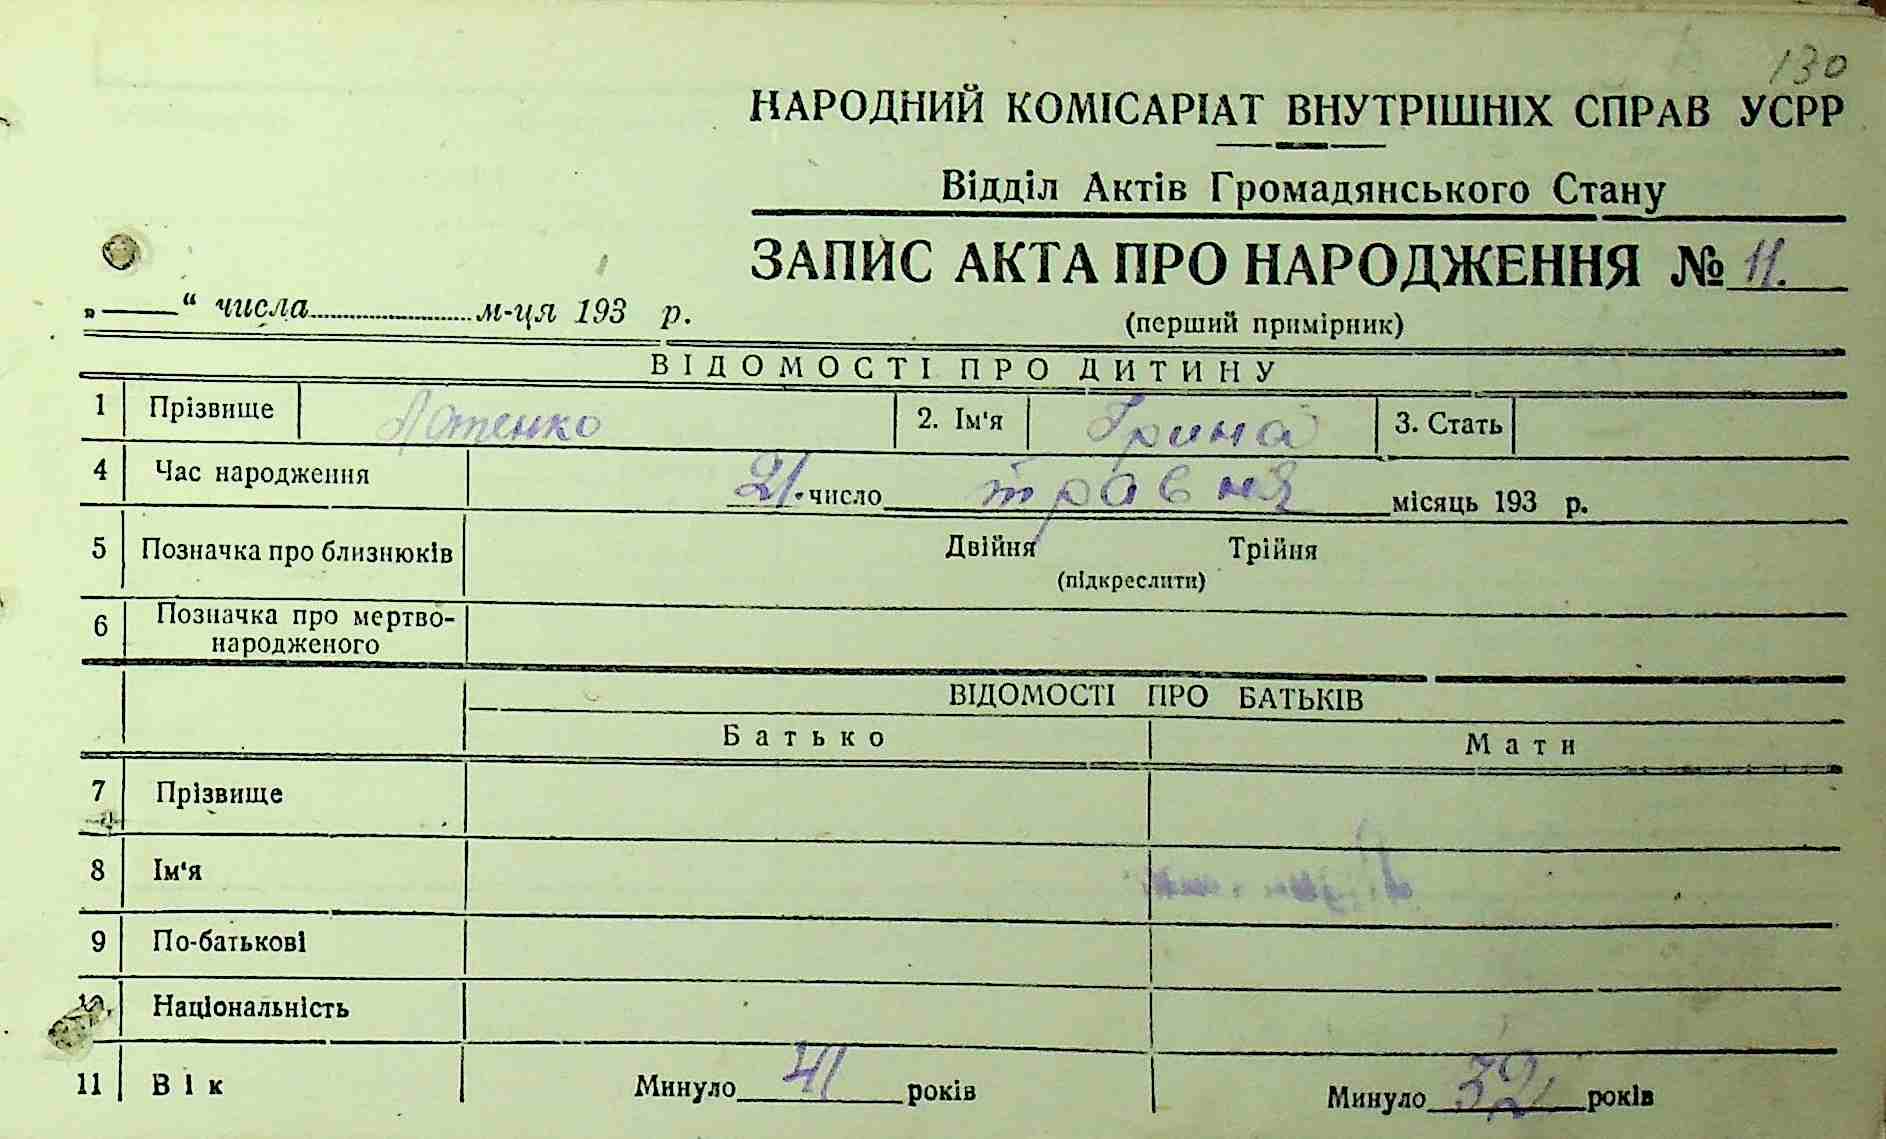 130
НАРОДНИЙ КОМІСАРІАТ ВНУТРІШНІХ СПРАВ УСРР
Відділ Актів Громадянського Стану
ЗАПИС АКТА ПРО НАРОДЖЕННЯ № 11.
„ “ числа м-ця 193 р.
(перший примірник)
ВІДОМОСТІ ПРО ДИТИНУ
1 Прізвище 2. Ім'я Ірина 3. Стать
4 Час народження 21. число травня місяць 193 р.
5 Позначка про близнюків Двійня Трійня
(підкреслити)
6 Позначка про мертво-
народженого
ВІДОМОСТІ ПРО БАТЬКІВ
Батько Мати
7 Прізвище
8 Ім'я
9 По-батькові
10 Національність
11 Вік Минуло 41 років Минуло 32 років